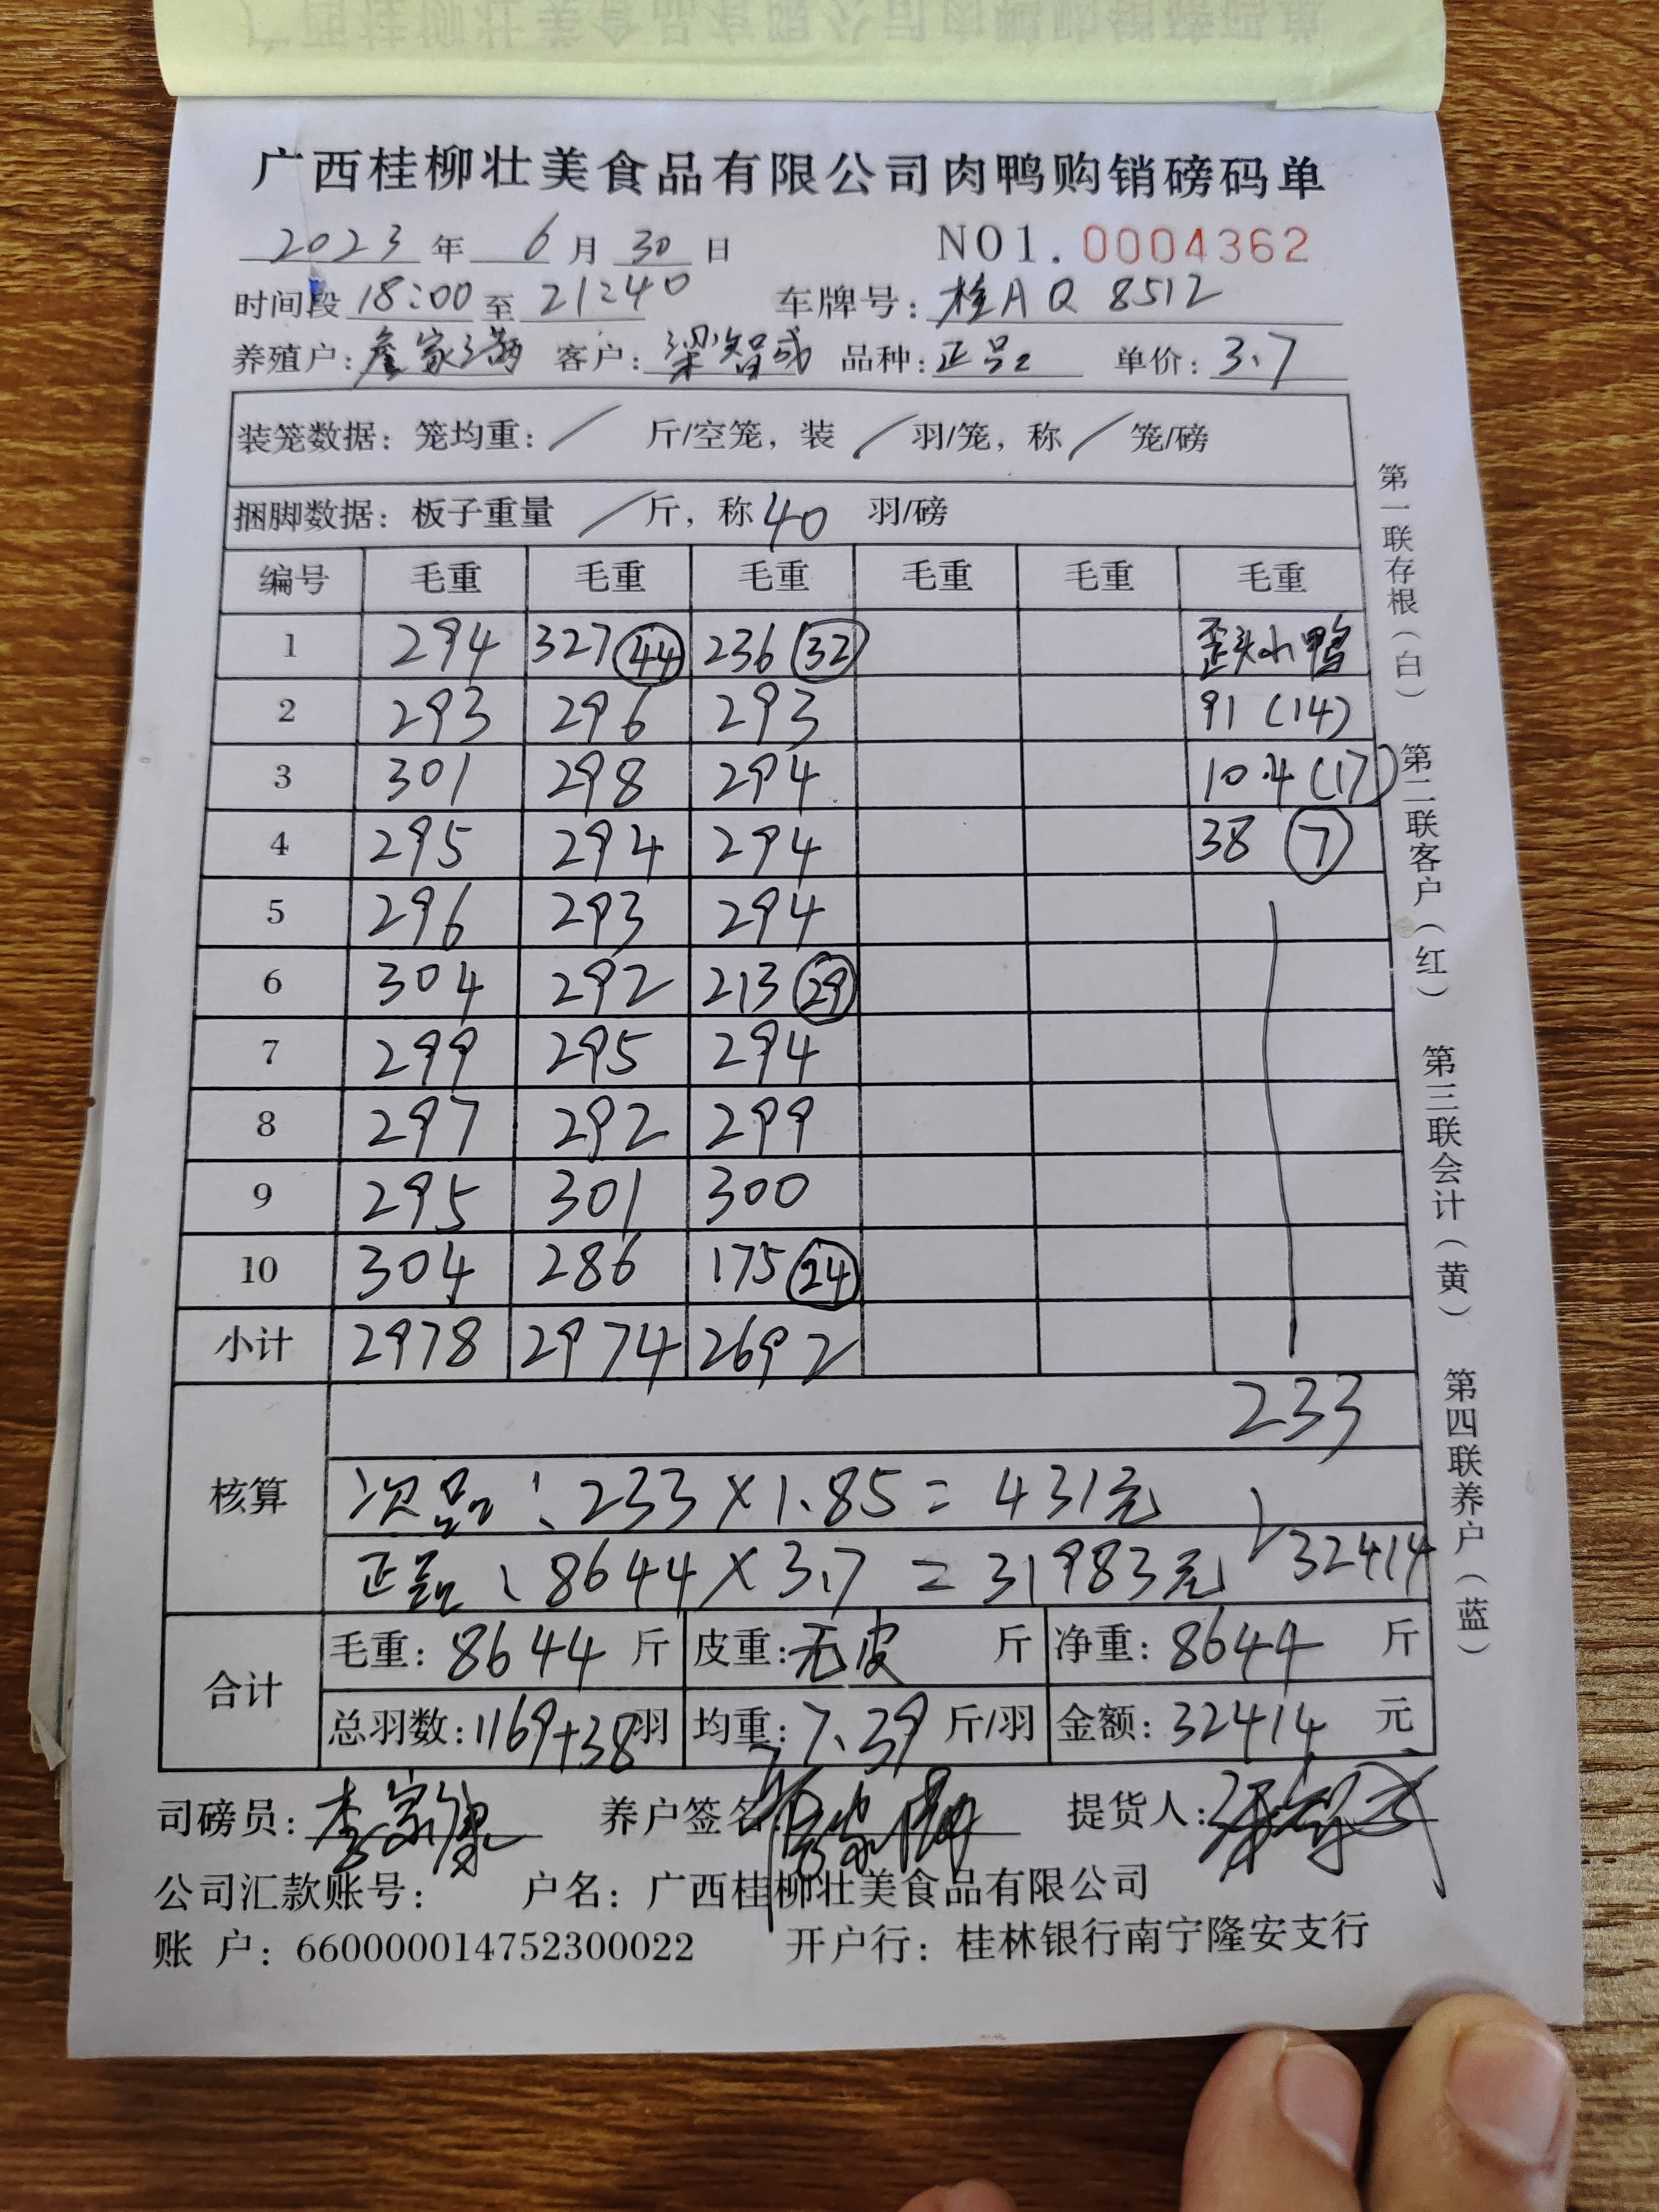 广西桂柳壮美食品有限公司肉鸭购销磅码单
2023 年 6 月 30 日 NO1. 0004362
时间段 18:00 至 21:40 车牌号: 桂A Q 8512
养殖户: 詹家满 客户: 梁智成 品种: 正品 单价: 3.7
装笼数据: 笼均重: / 斤/空笼, 装 / 羽/笼, 称 / 笼/磅
捆脚数据: 板子重量 / 斤, 称 40 羽/磅
编号 毛重 毛重 毛重 毛重 毛重 毛重
1 294 327 (44) 236 (32) 歪头小鸭
2 293 296 293 91 (14)
3 301 298 294 104 (17)
4 295 294 294 38 (7)
5 296 293 294
6 304 292 213 (29)
7 299 295 294
8 297 292 299
9 295 301 300
10 304 286 175 (24)
小计 2978 2974 2692
233
核算
次品: 233 × 1.85 = 431元
正品: 8644 × 3.7 = 31983元 32414
合计
毛重: 8644 斤 皮重: 无皮 斤 净重: 8644 斤
总羽数: 1169+38 羽 均重: 7.39 斤/羽 金额: 32414 元
司磅员: 李家康 养户签名: 提货人:
公司汇款账号: 户名: 广西桂柳壮美食品有限公司
账 户: 660000014752300022 开户行: 桂林银行南宁隆安支行
第一联存根(白) 第二联客户(红) 第三联会计(黄) 第四联养户(蓝)